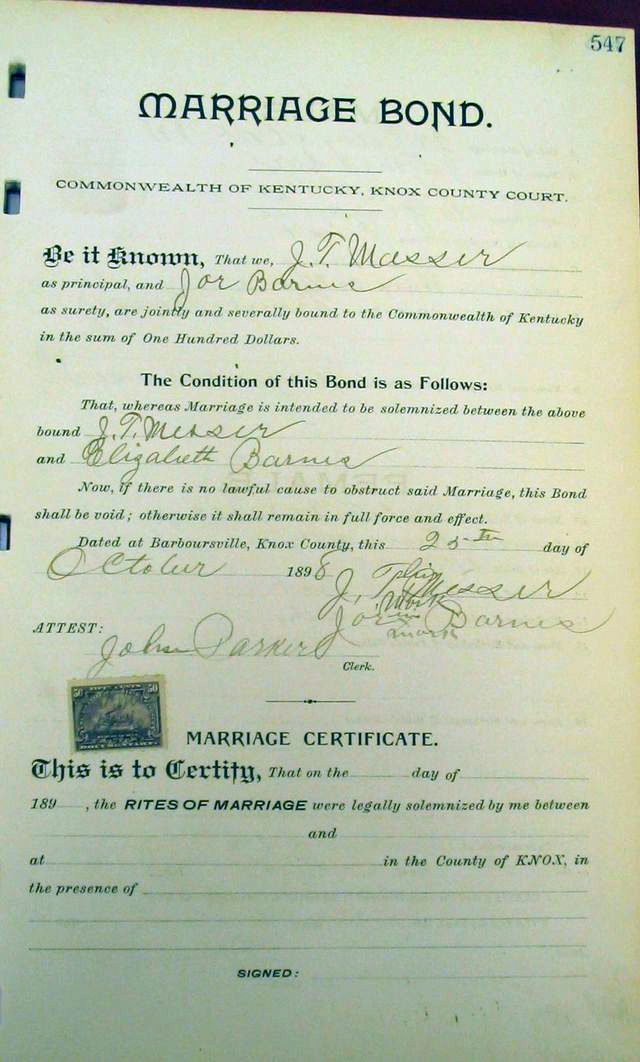 547
MARRIAGE BOND.
COMMONWEALTH OF KENTUCKY, KNOX COUNTY COURT.
Be it Known, That we, J. T. Messer
as principal, and Joe Barnes
as surety, are jointly and severally bound to the Commonwealth of Kentucky
in the sum of One Hundred Dollars.
The Condition of this Bond is as Follows:
That, whereas Marriage is intended to be solemnized between the above
bound J. T. Messer
and Elizabeth Barnes
Now, if there is no lawful cause to obstruct said Marriage, this Bond
shall be void; otherwise it shall remain in full force and effect.
Dated at Barboursville, Knox County, this 25th day of
October 1898
J. T. his Messer
mark
Joe his Barnes
mark
ATTEST:
John Parker
Clerk.
50 50
DOCUMENTARY
MARRIAGE CERTIFICATE.
This is to Certify, That on the day of
189 , the RITES OF MARRIAGE were legally solemnized by me between
and
at in the County of KNOX, in
the presence of
SIGNED: